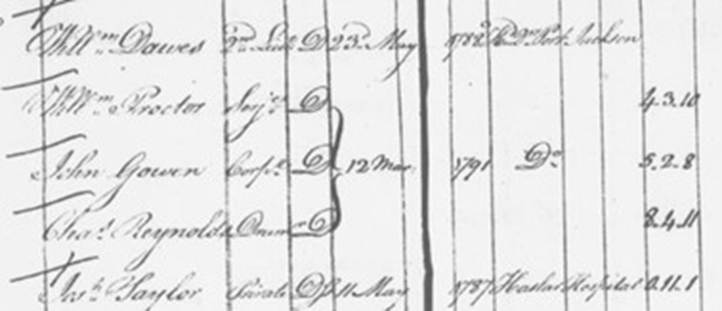 Will.m Dawes 2.nd Lieut D 23.d May 1788 Port Jackson
Will.m Proctor Serj.t D 4.3.10
John Gowen Corp.l D 12 Mar. 1791 D.o 5.2.8
Cha.s Reynolds Drum.r D 8.4.11
Jos.h Saylor Private D 11 May 1787 Haslar Hospital 0.11.1